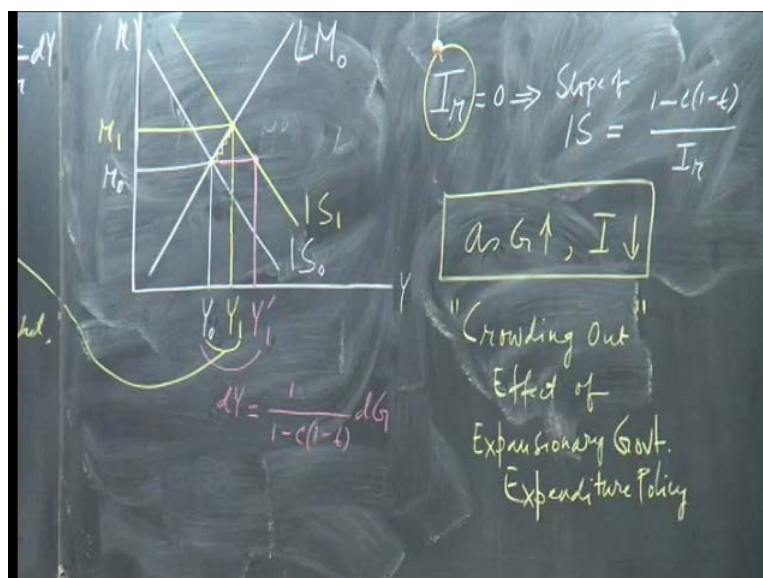 = dY
r
LM₀
r₁
r₀
IS₁
IS₀
Y
Y₀ Y₁ Y₁'
dY = 1/(1-c(1-t)) dG
I_r = 0 ⇒ Slope of
IS = (1-c(1-t))/I_r
as G↑, I↓
"Crowding Out"
Effect of
Expansionary Govt.
Expenditure Policy